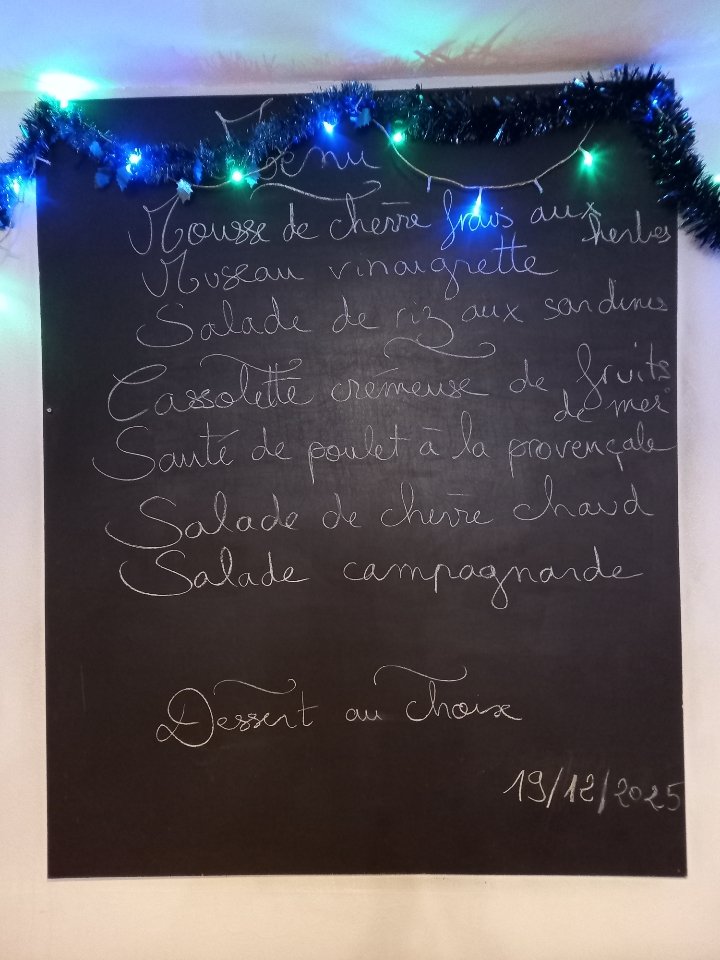 Menu
Mousse de chèvre frais aux
herbes
Museau vinaigrette
Salade de riz aux sardines
Cassolette crémeuse de fruits
de mer
Sauté de poulet à la provençale
Salade de chèvre chaud
Salade campagnarde
Dessert au choix
19/12/2025